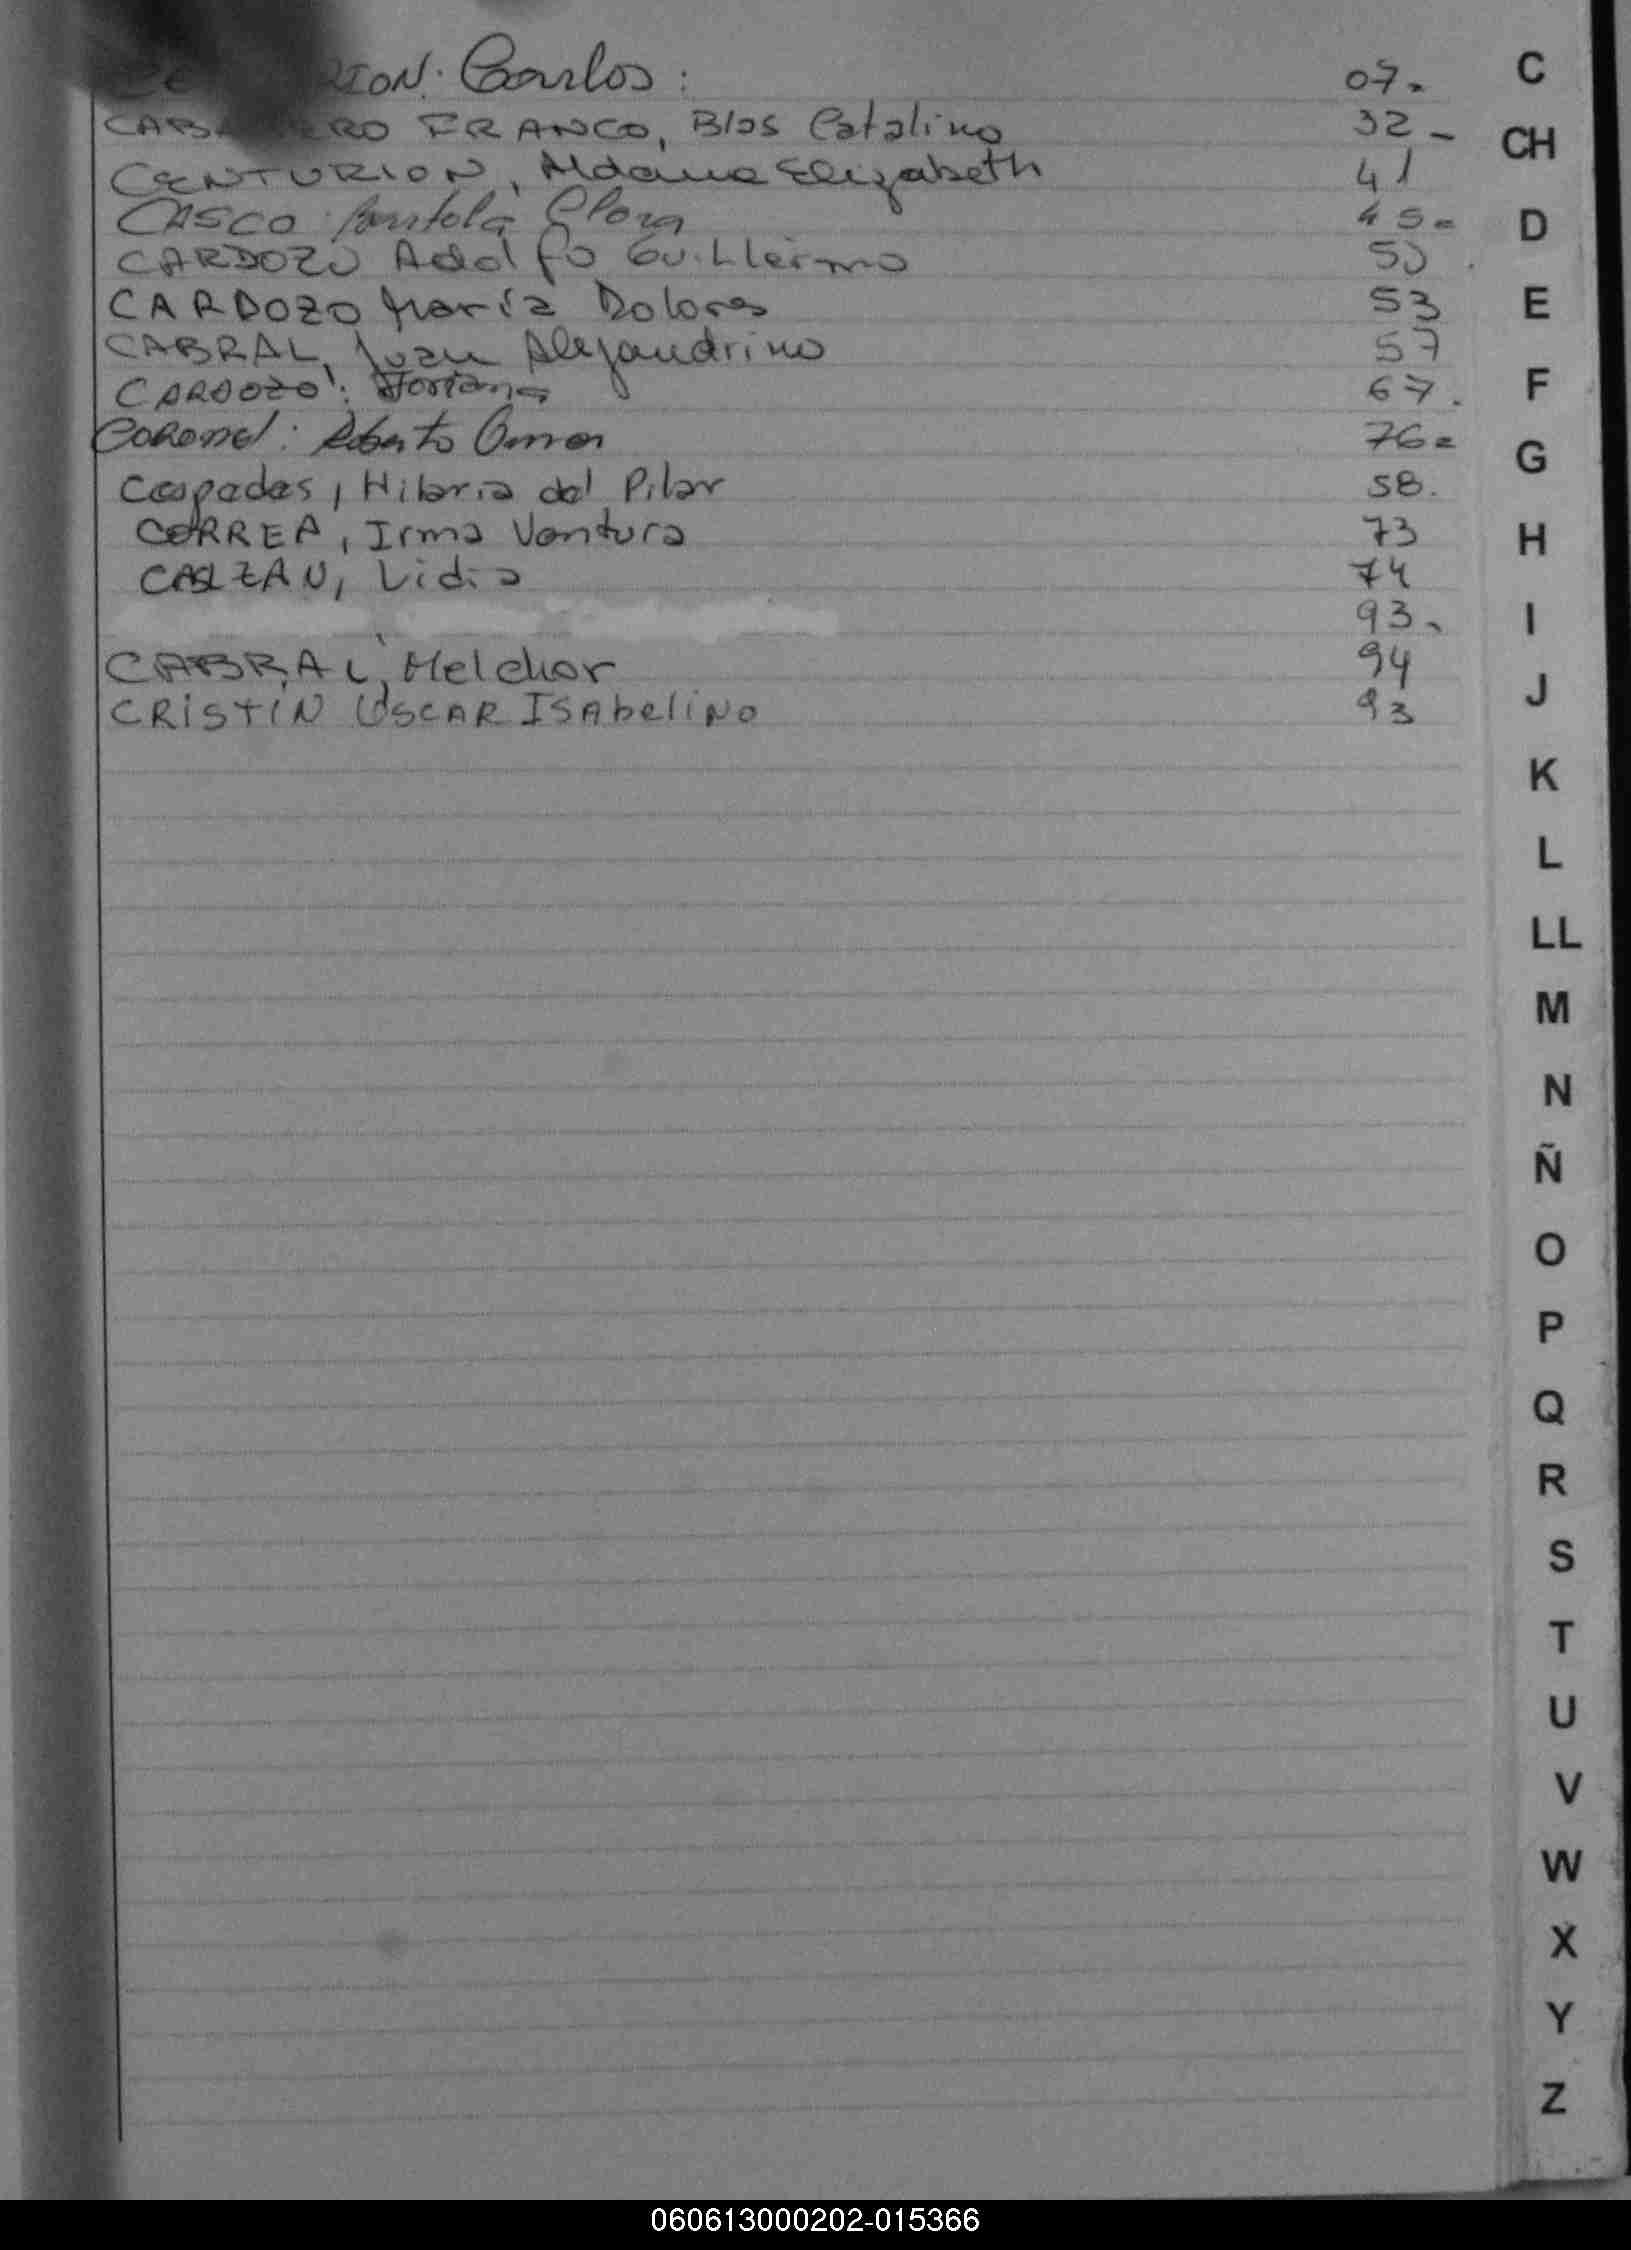 Carlos: 07.
FRANCO, Blas Catalino 32_
CENTURION, Aldama Elizabeth 41
CASCO Flora 45=
CARDOZO Adolfo Guillermo 50
CARDOZO María Dolores 53
CABRAL, Juan Alejandrino 57
CARDOZO: 67.
Coronel: Roberto Omar 76=
Cespedes, Hilaria del Pilar 58.
CORREA, Irma Ventura 73
Lidia 74
93.
CABRAL, Melchor 94
CRISTIN OSCAR ISAbeliNO 93
C
CH
D
E
F
G
H
I
J
K
L
LL
M
N
Ñ
O
P
Q
R
S
T
U
V
W
X
Y
Z
060613000202-015366